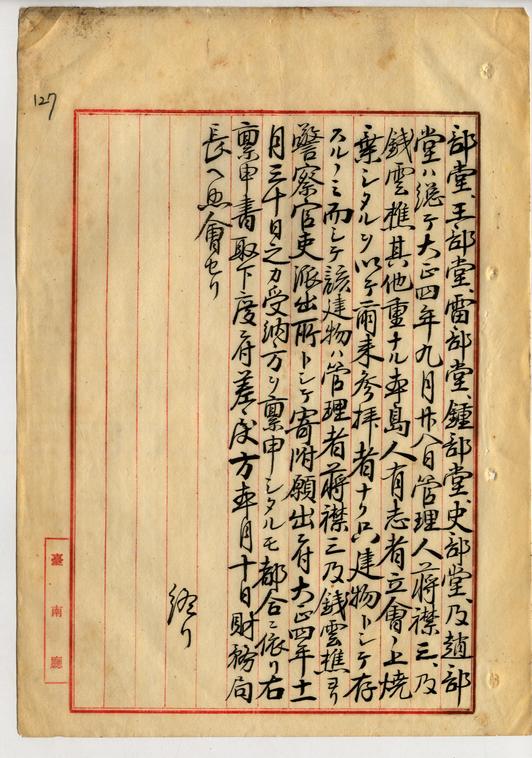 127
部堂、王部堂、雷部堂、鍾部堂、史部堂、及趙部
堂ハ総テ大正四年九月廿八日管理人蔣襟三、及
錢雲樵其他重ナル本島人有志者立會ノ上燒
棄シタルヲ以テ爾来参拝者ナク只建物トシテ存
スルノミ而シテ該建物ハ管理者蔣襟三及錢雲樵ヨリ
警察官吏派出所トシテ寄附願出ニ付大正四年十一
月三十日之カ受納方ヲ稟申シタルモ都合ニ依リ右
稟申書取下度ニ付差戻方本月十日財務局
長ヘ照會セリ
終リ
臺南廳